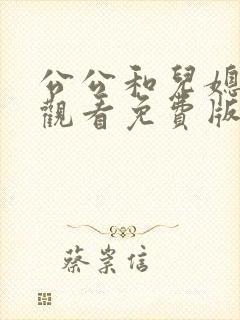 公公和兒媳
觀看免費版
蔡崇信